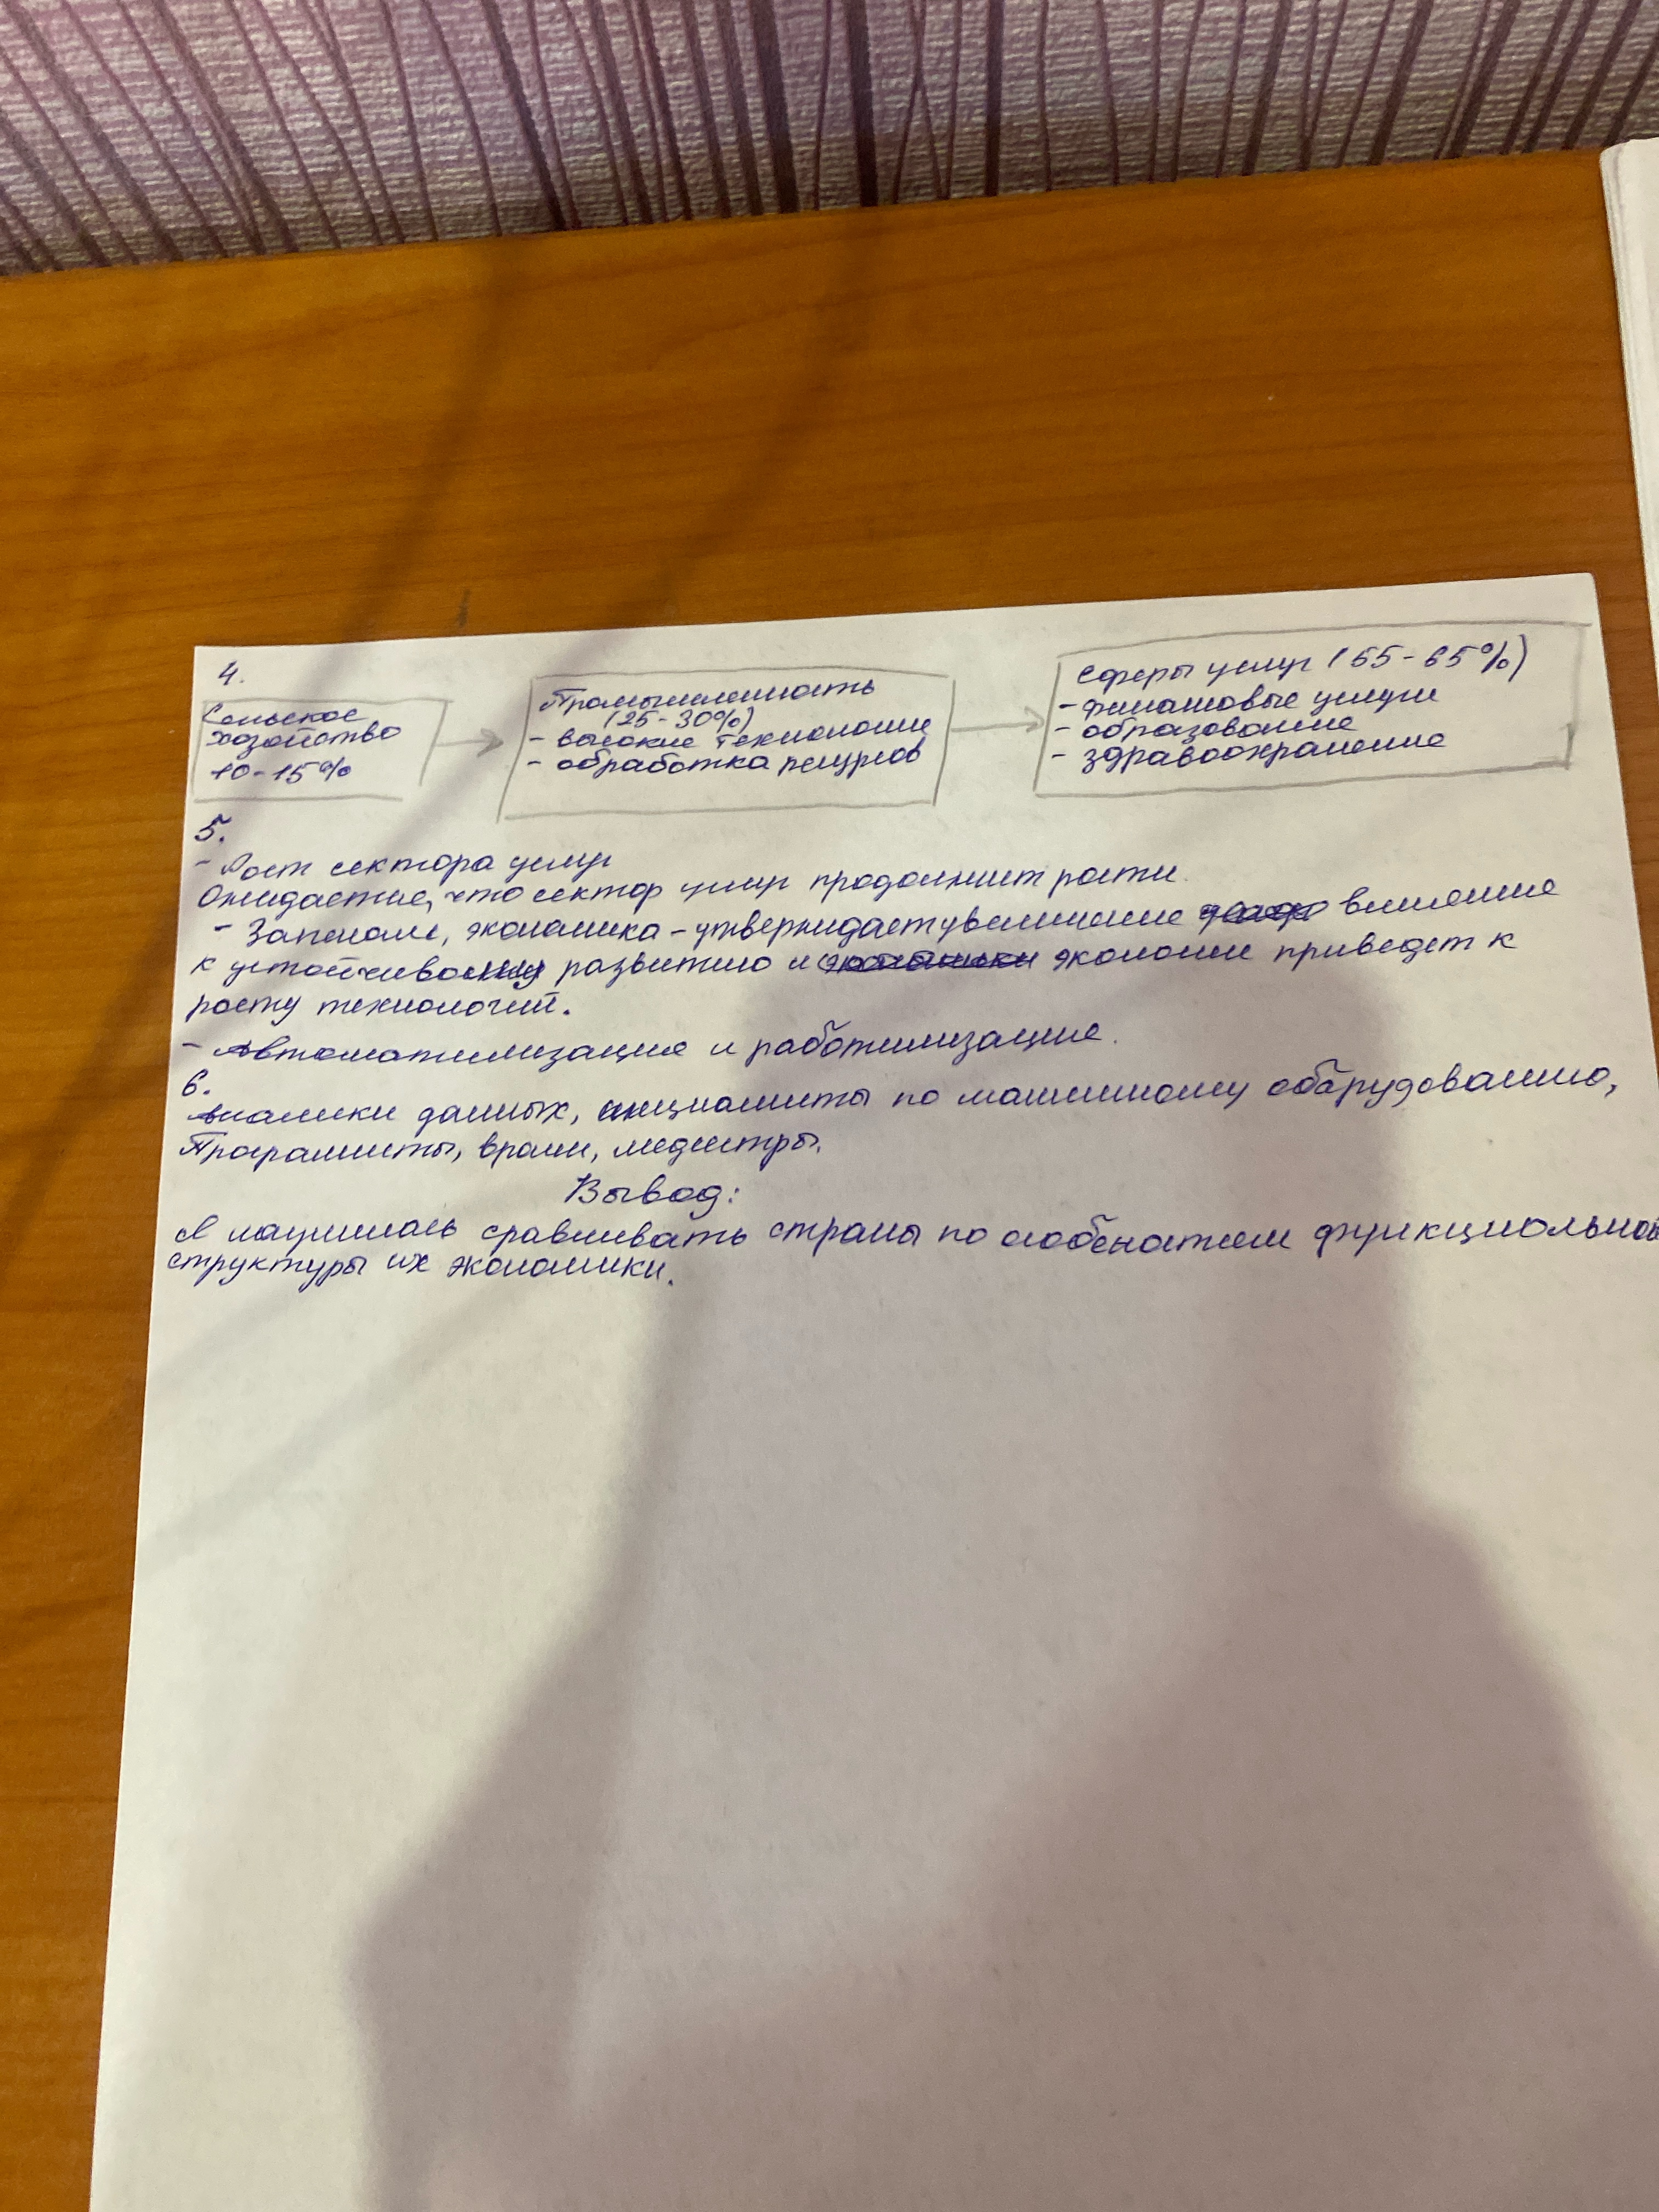 4.
Сельское
хозяйство
10-15%
Промышленность
(25-30%)
- высокие технологии
- обработка ресурсов
Сферы услуг (55-65%)
- финансовые услуги
- образование
- здравоохранение
5.
- Рост сектора услуг
Ожидается, что сектор услуг продолжит расти.
- экономика - утверждает увеличение
к развитию и экономии приведет к
росту технологий.
- Автоматилизация и работилизация.
6.
Аналики данных, специалисты по машинному оборудованию,
Программисты, врачи, медсестры.
Вывод:
Я научилась сравнивать страны по особеностям функциональной
структуры их экономики.